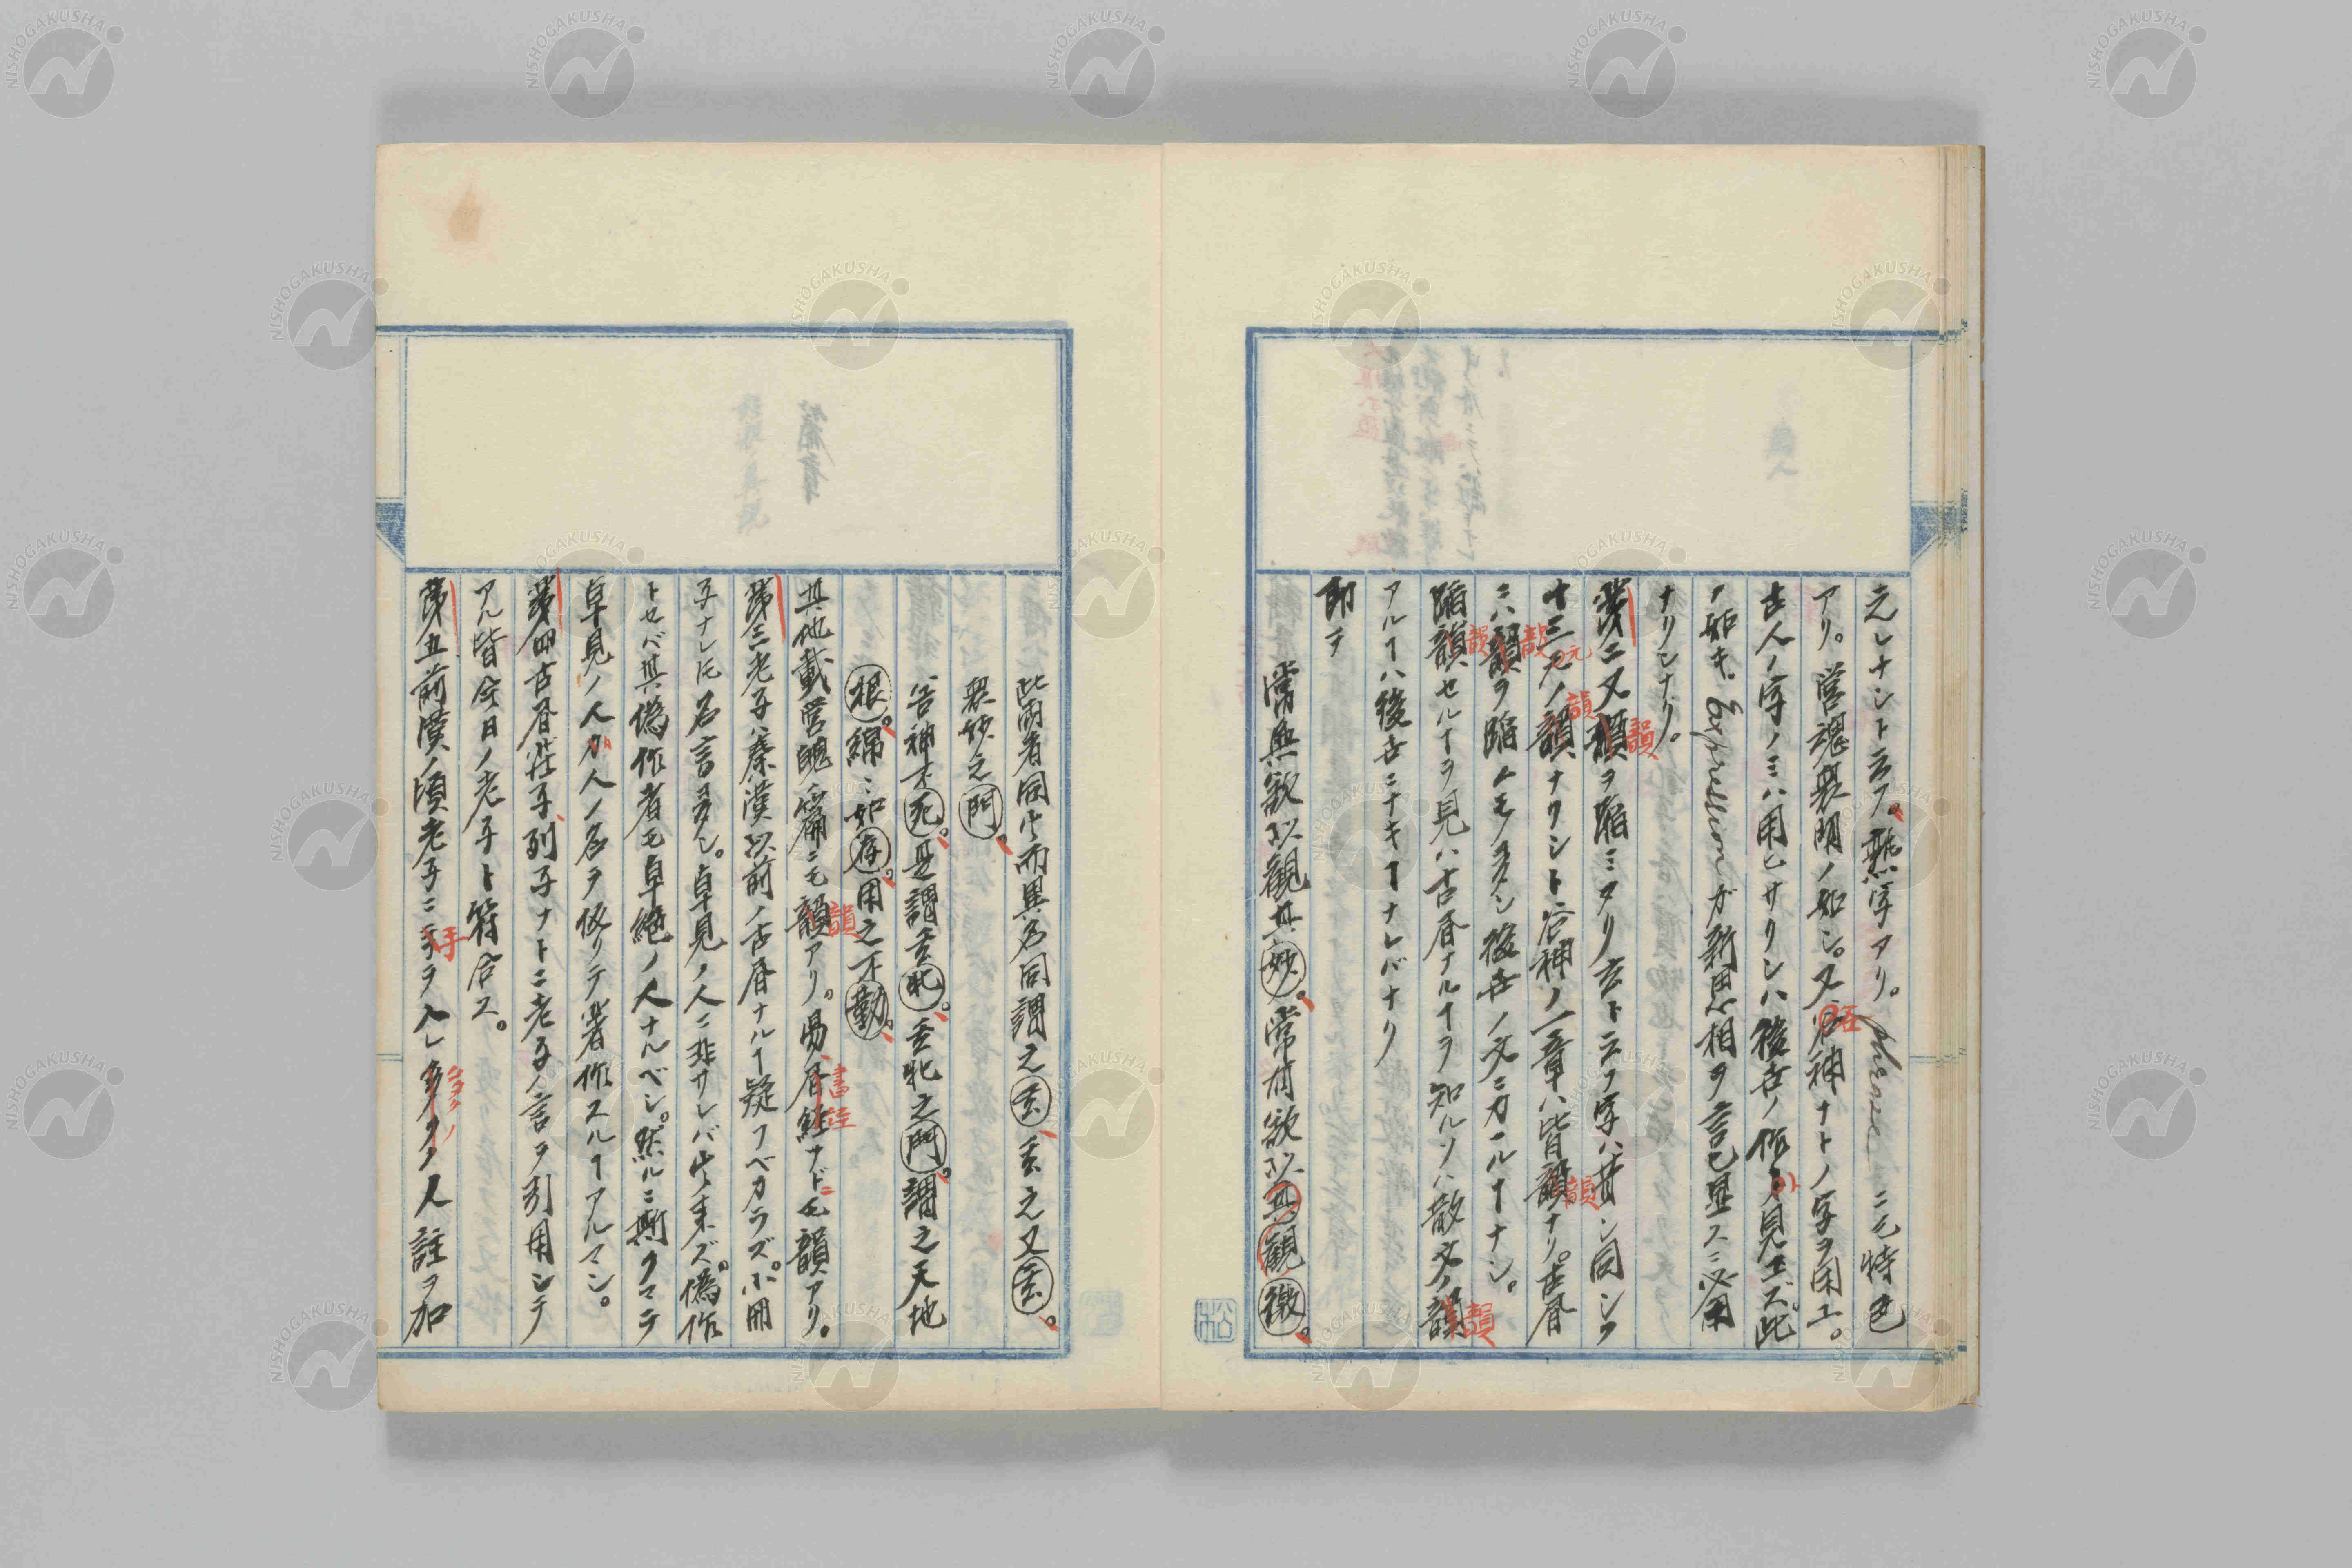 元シナシト云フ。熟字アリ。phrase ニモ特色
アリ。営魂襲明ノ如シ。又谷神ナトノ字ヲ用エ。
古人ノ字ノミハ用ヒサリシハ後古ノ作ニ見エズ此
ノ如キ。Expression ガ新思想ヲ言已显スニ必用
ナリシナリ。
第二又韻ヲ蹈ミタリ玄ト云フ字ハ昔シ同シク
十三元ノ韻ナクシト谷神ノ一章ハ皆韻ナリ。古昏
ニハ韻ヲ蹈ムモノ多シ後世ノ文ニカヽルヿナシ。
蹈韻セルヿヲ見ハ古昏ナルヿヲ知ルソハ散文ノ韻
アルヿハ後古ニナキヿナレバナリ
即チ
常無欲以観其妙。常有欲以其観徼。
此両者同出而異名同謂之玄、玄之又玄。
衆妙之門、
谷神不死。是謂玄牝。玄牝之門。謂之天地
根。綿〻如存。用之不勤。
其他載営魄篇ニモ韻アリ。易、書経ナドニモ韻アリ。
第三老子ハ秦漢以前ノ古昏ナルヿ疑フベカラズ。小冊
子ナレ𪜈名言多シ。卓見ノ人ニ非サレバ出来ズ。偽作
トセバ其偽作者モ卓絶ノ人ナルベシ。然ルニ斯クマテ
卓見ノ人カ人ノ名ヲ仮リテ著作スルヿアルマシ。
第四古昏荘子、列子ナトニ老子ノ言ヲ引用シテ
アル皆今日ノ老子ト符合ス。
第五前漢ノ頃老子ニ手ヲ入レ多クノ人註ヲ加